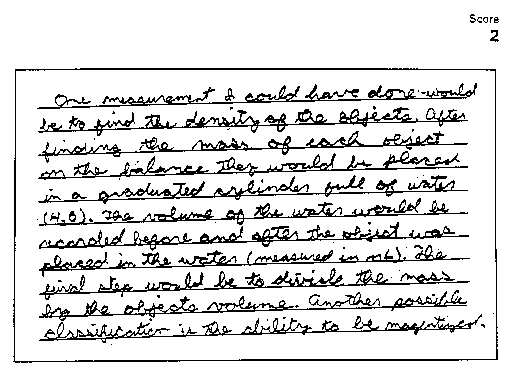 Score
2
One measurement I could have done would
be to find the density of the objects. After
finding the mass of each object
on the balance they would be placed
in a graduated cylinder full of water
(H2O). The volume of the water would be
recorded before and after the object was
placed in the water (measured in mL). The
final step would be to divide the mass
by the objects volume. Another possible
classification is the ability to be magnetized.